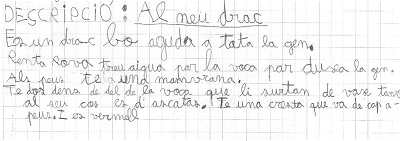 DESCRIPCIÓ: Al meu drac
Es un drac bo aguda a tata la gen.
Renta rova treu aigua par la voca par dusca la gen.
Als peus te una mambrana.
Te dos dens de del de la voca que li surtan de vase
al seu cos es d'ascatas. Te una cresta que va de cap a
peus. I es vermell